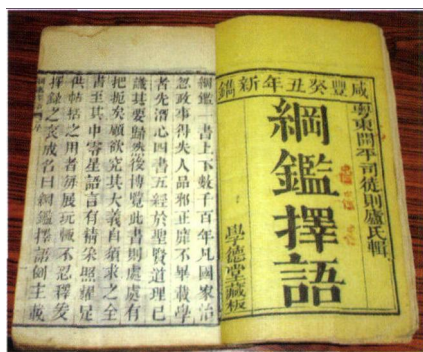 咸豐癸丑年新鐫
粵東開平司徒則廬氏輯
綱鑑擇語
學德堂藏板
綱鑑一書上下數千百年凡國家治
忽政事得失人品邪正靡不畢載學
者先潛心四書五經於聖賢道理已
識其要歸然後博覽此書則處處有
把扼矣顧欲究其大義自須求之全
書至其中零星語言有精采照耀足
供帖括之用者每展玩輒不忍釋爰
擇錄之裒成名曰綱鑑擇語例主裁